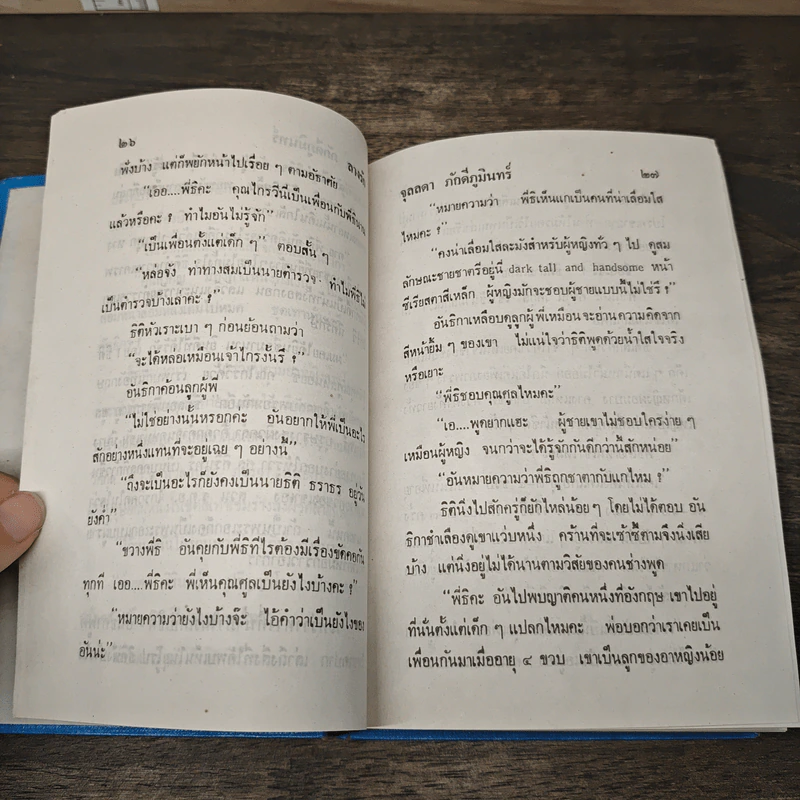 ๒๖
ฟังบ้าง แต่ก็พยักหน้าไปเรื่อย ๆ ตามอัธยาศัย
“เออ....พี่ธิคะ คุณไกรวีนี่เป็นเพื่อนกับพี่ธินาน
แล้วหรือคะ ? ทำไมอันไม่รู้จัก”
“เป็นเพื่อนตั้งแต่เด็ก ๆ” ตอบสั้น ๆ
“หล่อจัง ท่าทางสมเป็นนายตำรวจ ทำไมพี่ธิไม่
เป็นตำรวจบ้างเล่าคะ ?”
ธิติหัวเราะเบา ๆ ก่อนย้อนถามว่า
“จะได้หล่อเหมือนเจ้าไกรงั้นรึ ?”
อันธิกาค้อนลูกผู้พี่
“ไม่ใช่อย่างนั้นหรอกคะ อันอยากให้พี่เป็นอะไร
สักอย่างหนึ่งแทนที่จะอยู่เฉย ๆ อย่างนี้”
“ถึงจะเป็นอะไรก็ยังคงเป็นนายธิติ ธราธร อยู่วัน
ยังค่ำ”
“ขวางพี่ธิ อันคุยกับพี่ธิทีไรต้องมีเรื่องขัดคอกัน
ทุกที เออ....พี่ธิคะ พี่เห็นคุณศูลเป็นยังไงบ้างคะ ?”
“หมายความว่ายังไงบ้างจ๊ะ ไอ้คำว่าเป็นยังไงของ
อันน่ะ”
จุลลดา ภักดีภูมินทร์
๒๗
“หมายความว่า พี่ธิเห็นแกเป็นคนที่น่าเลื่อมใส
ไหมคะ ?”
“คงน่าเลื่อมใสละมังสำหรับผู้หญิงทั่ว ๆ ไป ดูสม
ลักษณะชายชาตรีอยู่นี่ dark tall and handsome หน้า
ซีเรียสตาสีเหล็ก ผู้หญิงมักจะชอบผู้ชายแบบนี้ไม่ใช่รึ ?”
อันธิกาเหลือบดูลูกผู้พี่เหมือนจะอ่านความคิดจาก
สีหน้ายิ้ม ๆ ของเขา ไม่แน่ใจว่าธิติพูดด้วยน้ำใสใจจริง
หรือเยาะ
“พี่ธิชอบคุณศูลไหมคะ”
“เอ....พูดยากแฮะ ผู้ชายเขาไม่ชอบใครง่าย ๆ
เหมือนผู้หญิง จนกว่าจะได้รู้จักกันดีกว่านี้สักหน่อย”
“อันหมายความว่าพี่ธิถูกชาตากับแกไหม ?”
ธิตินิ่งไปสักครู่ก็ยักไหล่น้อย ๆ โดยไม่ได้ตอบ อัน
ธิกาชำเลืองดูเขาแว่บหนึ่ง คร้านที่จะเซ้าซี้ถามจึงนิ่งเสีย
บ้าง แต่นิ่งอยู่ไม่ได้นานตามวิสัยของคนช่างพูด
“พี่ธิคะ อันไปพบญาติคนหนึ่งที่อังกฤษ เขาไปอยู่
ที่นั่นตั้งแต่เด็ก ๆ แปลกไหมคะ พ่อบอกว่าเราเคยเป็น
เพื่อนกันมาเมื่ออายุ ๔ ขวบ เขาเป็นลูกของอาหญิงน้อย